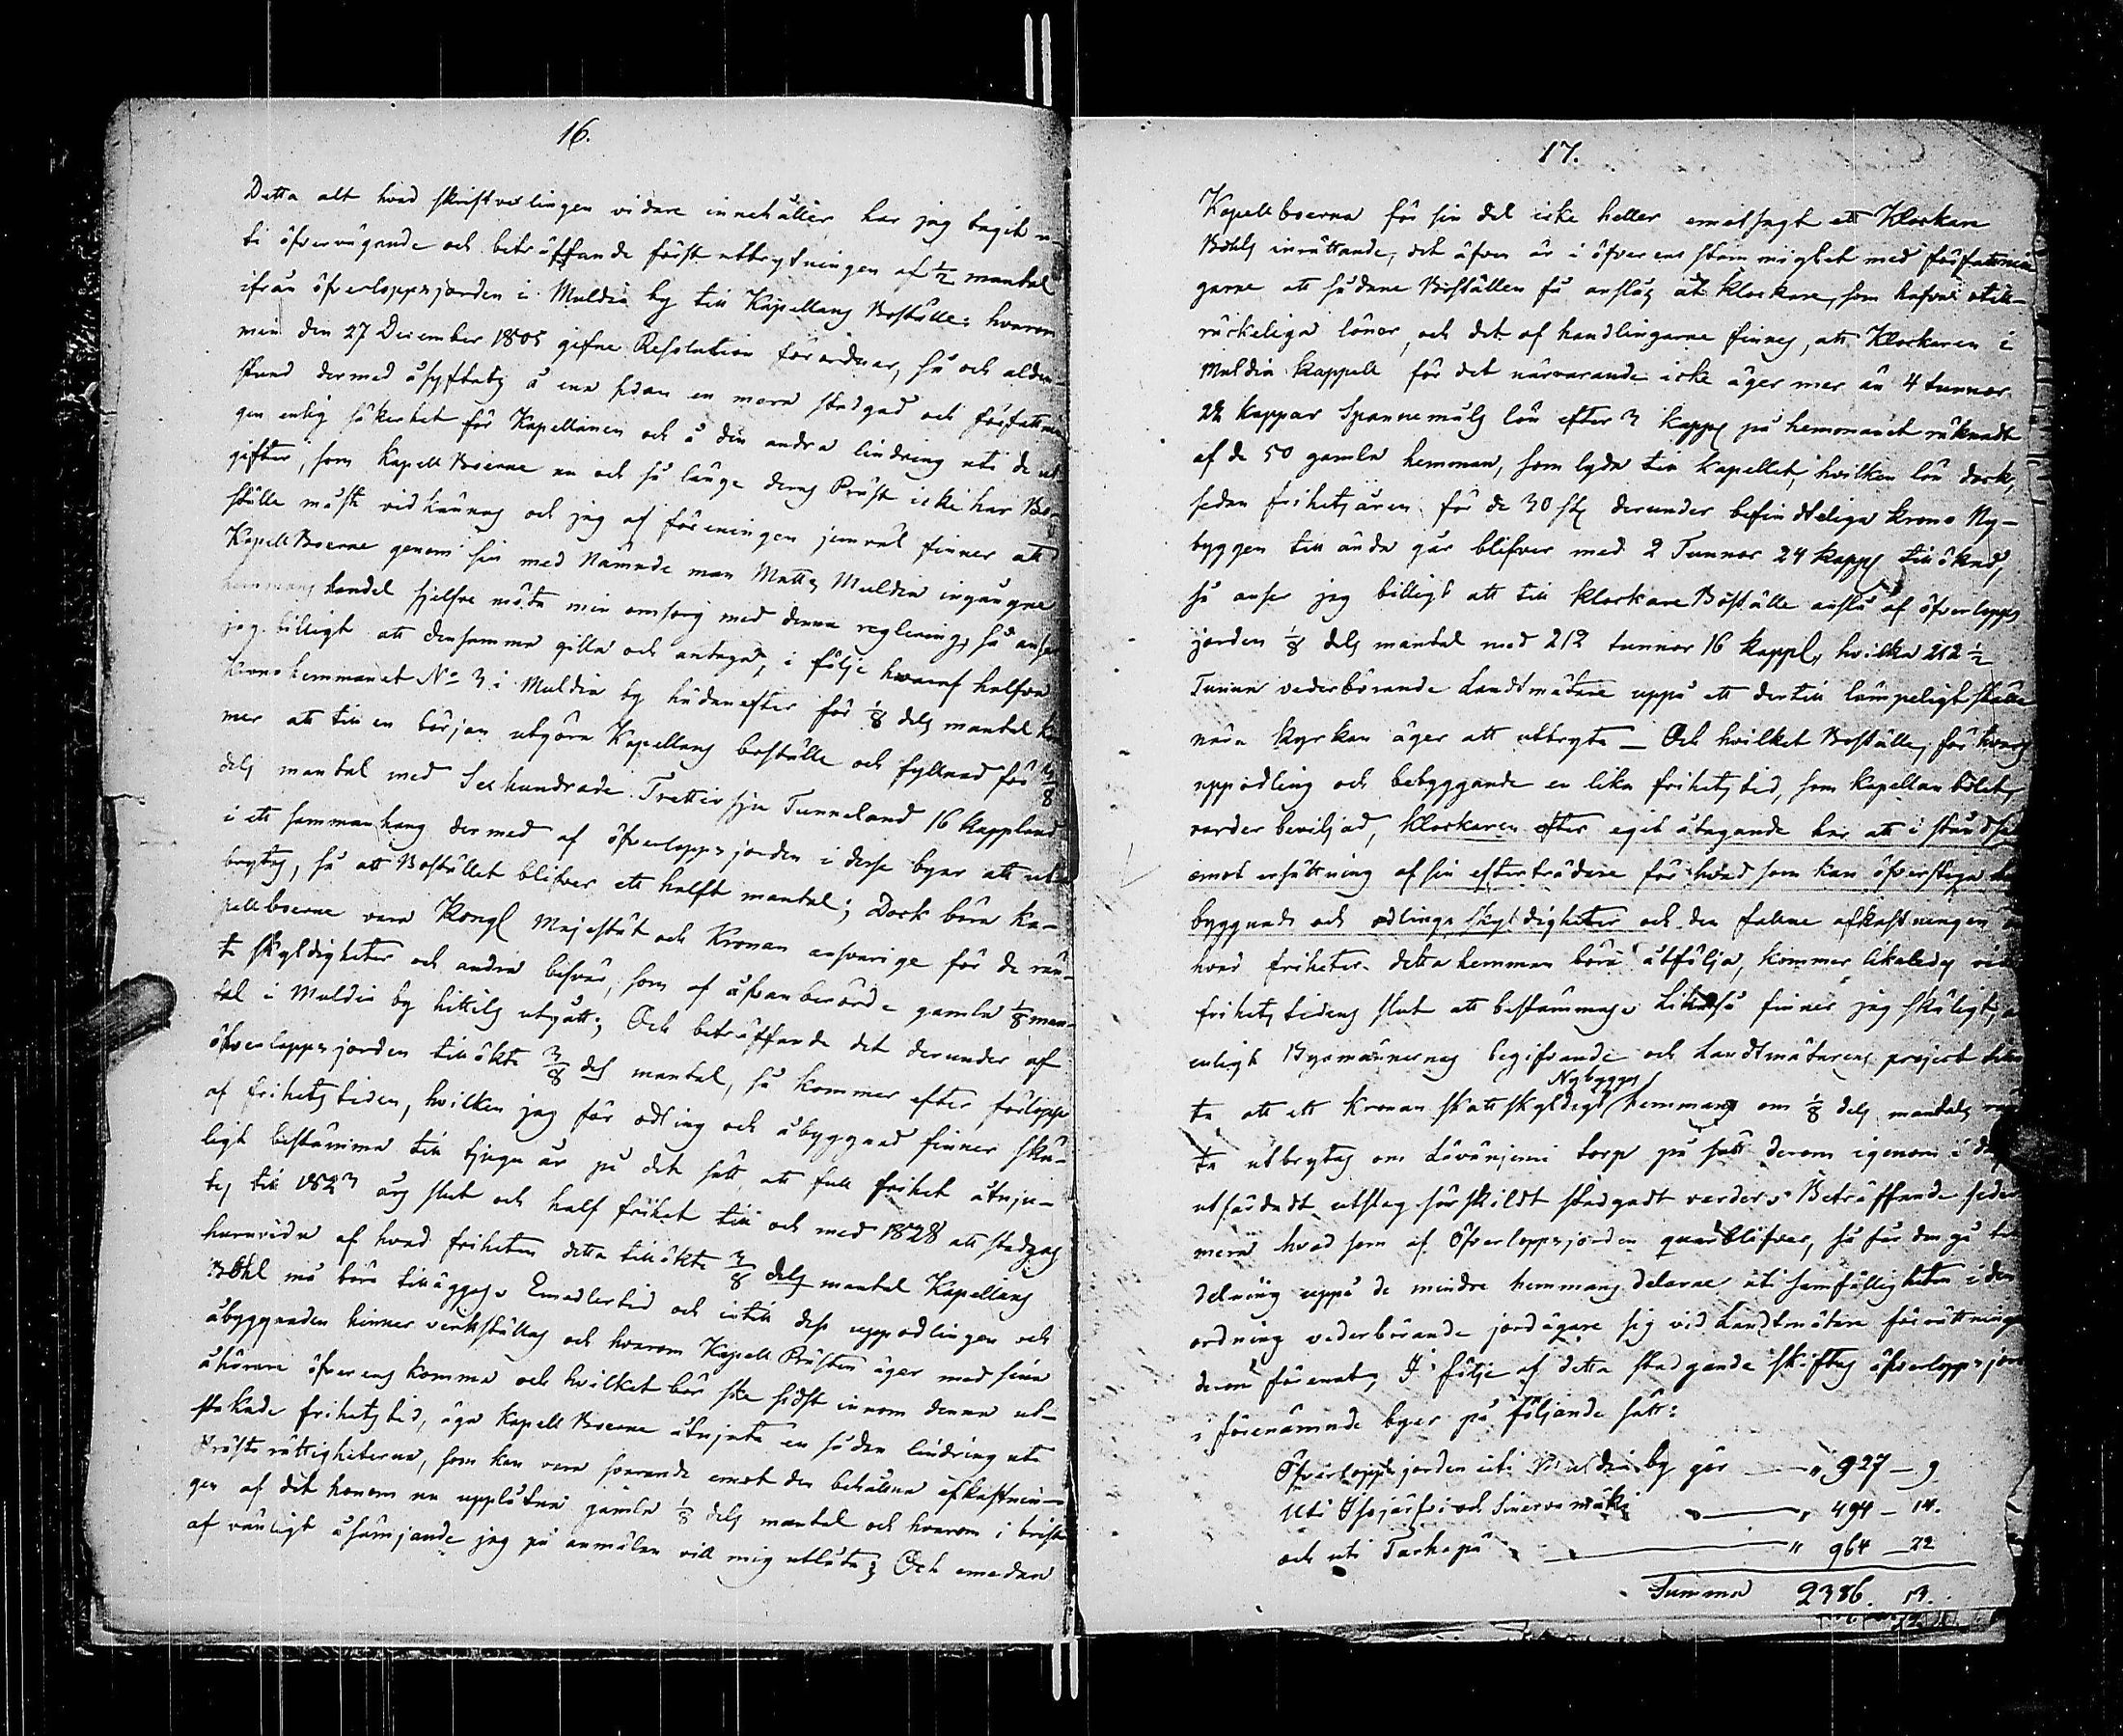 16.
Detta alt hvad skriftvexlingen vidare innehåller har jag tagit u-
ti öfvervägande och beträffande först utbrytningen af 1/2 mantal
ifrån öfverloppsjorden i Muldia by till Kapellans Boställe; hvarom
min den 27 December 1805 gifne Resolution förordnar, så och alden-
stund dermed åsyftats å ena sidan en mera stadgad och författnin
gen enlig säkerhet för Kapellanen och å den andra lindring uti de ut
gifter, som Kapell Boerne nu och så länge deras Präst icke har Bo-
ställe måste vidkännas och jag af föreningen jemväl finner att
KapellBoerne genom sin med Nämnde man Matts Muldia ingångne
hemmans handel sjelfve möta min omsorg med denna reglering, så anser
jag billigt att densamma gilla och antaga, i följe hvaraf halfva
Kronohemmanet No 3 i Muldia by hädanefter för 1/8 dels mantal kom
mer att till en början utgöra Kapellans boställe och fyllnad för 3/8
dels mantal med Sexhundrade Trettiosju Tunneland 16 Kappland
i ett sammanhang dermed af öfverloppsjorden i desse byar att ut
brytas, så att Bostället blifver ett halft mantal; Dock böra Ka-
pellboerne vara Kongl Majestät och Kronan ansvarige för de rän-
te skyldigheter och andra besvär, som af åfvanberörde gamla 1/8 man-
tal i Muldia by hittils utgått; Och beträffande det derunder af
öfverloppsjorden tillökte 3/8 dels mantal, så kommer efter förlopp
af frihetstiden, hvilken jag för odling och åbyggnad finner skä-
ligt bestämma till tjugu år på det sätt att full frihet åtnju-
tes till 1823 års slut och half frihet till och med 1828 att stadgas
huruvida af hvad friheten detta tillökte 3/8 dels mantal Kapellans
Bohl må böra tilläggas. Emedlertid och intill dess uppodlingen och
åbyggnaden hinner verkställas och hvarom Kapell Prästen äger med sina
åhörare öfverens komma och hvilket bör ske sidst innom denna ut-
stakade frihetstid, äga Kapell Boerne åtnjuta en sådan lindring uti
Prästerättigheterna, som kan vara svarande emot den behållna afkastnin-
gen af det honom nu upplåtna gamla 1/8 dels mantal och hvarom i brist
af vänligt åsämjande jag på anmälan vill mig utlåta; Och emedan
17.
Kapellboerna för sin del icke heller emotsagt ett Klockare
Bohls inrättande, det äfven är i öfverensstämmighet med författnin
garne att sådane Boställen få anslås åt klockare, som hafva otill-
räckeliga löner, och det af handlingarne finnes, att Klockaren i
Muldia Kappell för det närvarande icke äger mer än 4 tunnor
22 kappar Spannemåls lön efter 3 kapps på hemmanet räknadt
af de 50 gamla hemman, som lyda till kapellet, hvilken lön dock,
sedan frihetsåren för de 30 st derunder befindteliga krono Ny-
byggen till ända går blifver med 2 Tunnor 24 kapps tillökad,
så anser jag billigt att till klockare Boställe anslå af öfverlopps
jorden 1/8 dels mantal med 212 tunnor 16 kappl, hvilka 212 1/2
Tunna vederbörande Landtmätare uppå ett dertill lämpeligt ställe
nära kyrkan äger att utbryta — Och hvilket Boställe, för hvars
uppodling och bebyggande en lika frihetstid, som kapellan bolet,
varder beviljad, klockaren efter eget åtagande bör att i stånd
emot ersättning af sin efterträdare för hvad som kan öfverstiga
byggnads och odlings skyldigheter och den fallna afkastningen
hvad friheter detta hemman böra åtfölja, kommer likaledes vid
frihetstidens slut att bestämmas. Likaså finner jag skäligt,
enligt Byamännernas begifvande och Landtmätarens project
ta att ett Kronan skattskyldigt Nybygges hemmans om 1/8 dels mantals
ta utbrytas om Lövänjemi torp på sätt derom igenom i dag
utfärdadt utslag särskildt stadgadt varder. Beträffande seder
mera hvad som af Öfverloppsjorden quarblifver, så får den gå till
delning uppå de mindre hemmans delarne uti samfälligheten i den
ordning vederbörande jordägare sig vid Landtmätare förrättningen
derom förenat. I följe af detta stadgande skiftas öfverloppsjor
i förenämnde byar på följande sätt:
Öfverlopps jorden uti Muldia by gör — " 927 — 9
Uti Ihsjärfvi och Sinervämäki — " 494 — 14.
och uti Tarhapä — " 964 — 22
Summa 2386. 13.